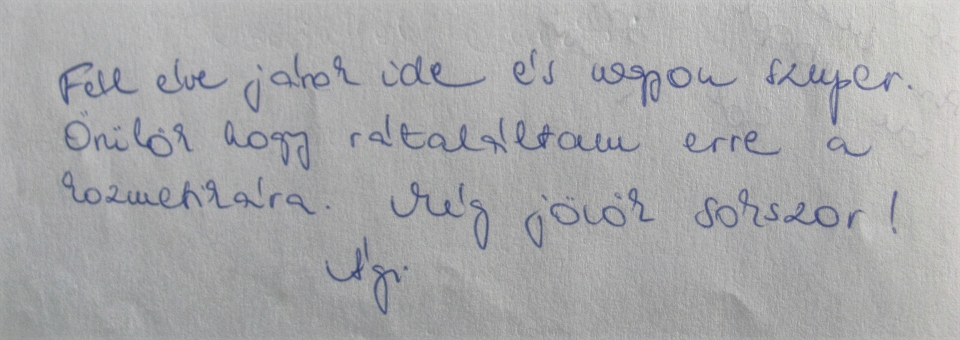 Fell éve járok ide és nagyon szuper.
Örülök hogy rátaláltam erre a
kozmetikára. Még jövök sokszor!
Ági.